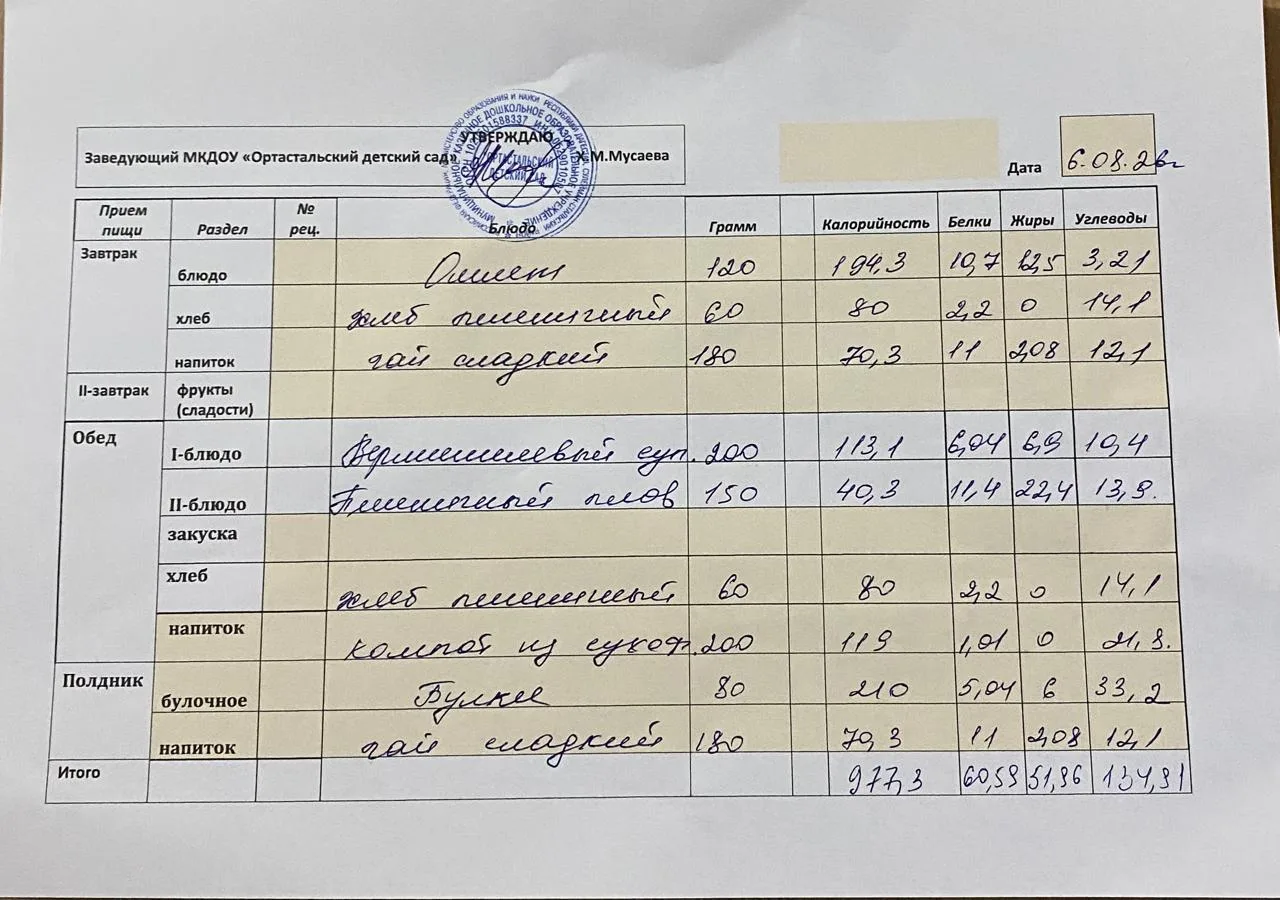 УТВЕРЖДАЮ
Заведующий МКДОУ «Ортастальский детский сад» Х.М.Мусаева
Дата 6.08.26г
Прием пищи Раздел № рец. Блюдо Грамм Калорийность Белки Жиры Углеводы
Завтрак блюдо Омлет 120 194,3 10,7 12,5 3,21
хлеб хлеб пшеничный 60 80 2,2 0 14,1
напиток чай сладкий 180 70,3 11 2,08 12,1
II-завтрак фрукты (сладости)
Обед I-блюдо Вермишелевый суп. 200 113,1 6,04 6,9 10,4
II-блюдо Пшеничный плов 150 40,3 11,4 22,4 13,9.
закуска
хлеб хлеб пшеничный 60 80 2,2 0 14,1
напиток компот из сухоф. 200 119 1,01 0 21,9.
Полдник булочное Булка 80 210 5,04 6 33,2
напиток чай сладкий 180 70,3 11 2,08 12,1
Итого 977,3 60,59 51,96 134,91